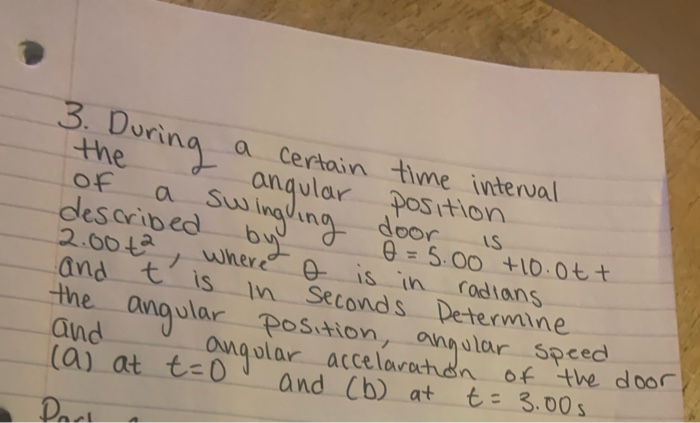 3. During a certain time interval
the angular position
of a swingding door is
described by θ = 5.00 +10.0t +
2.00t², where θ is in radians
and t is in seconds Determine
the angular position, angular speed
and angular accelaration of the door
(a) at t=0 and (b) at t = 3.00s